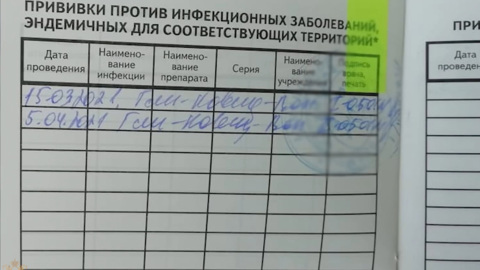 ПРИВИВКИ ПРОТИВ ИНФЕКЦИОННЫХ ЗАБОЛЕВАНИЙ,
ЭНДЕМИЧНЫХ ДЛЯ СООТВЕТСТВУЮЩИХ ТЕРРИТОРИЙ*
Дата проведения Наимено-вание инфекции Наимено-вание препарата Серия Наимено-вание учреждения Подпись врача, печать
15.03.2021 Гам-Ковид-Вак
5.04.2021 Гам-Ковид-Вак
ПРИ
Дата
проведе